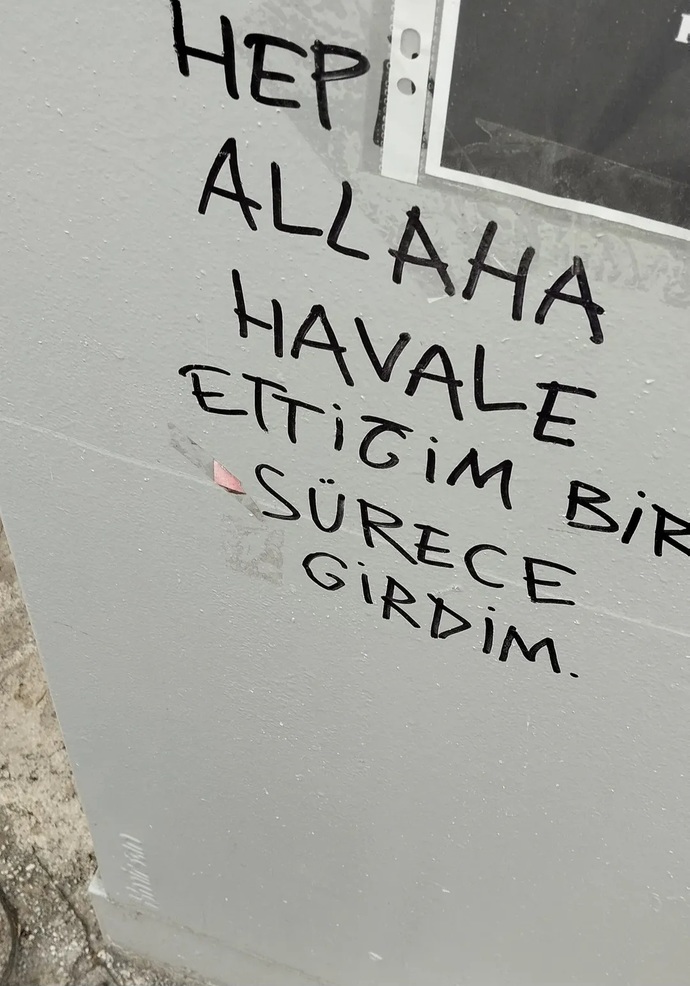 HEP
ALLAHA
HAVALE
ETTİĞİM BİR
SÜRECE
GİRDİM.